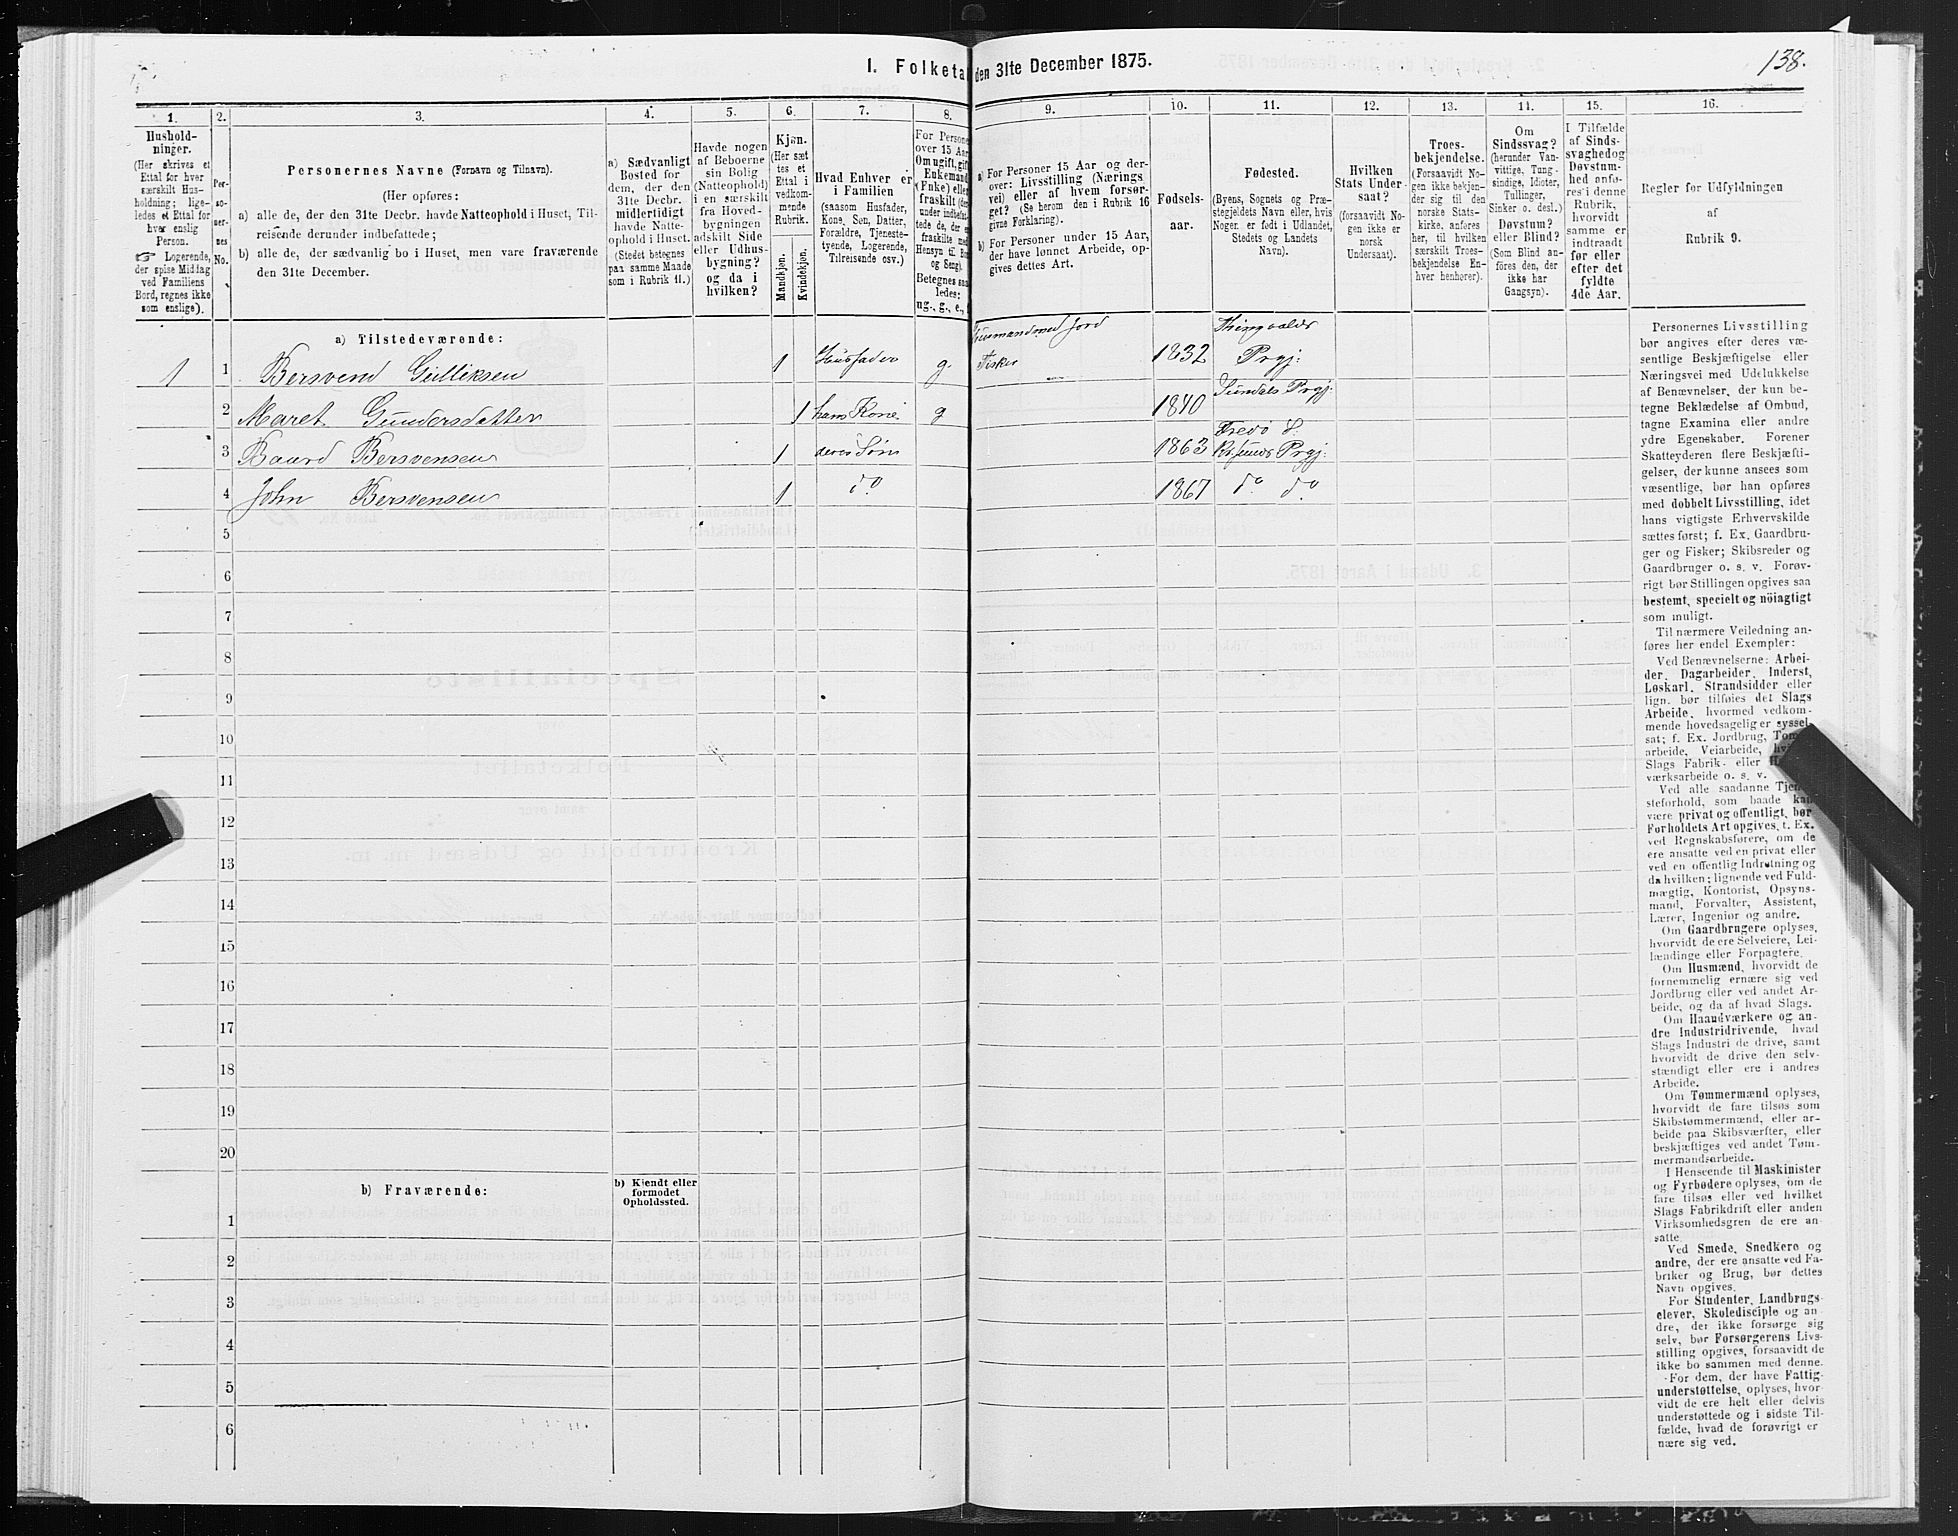 138.
I. Folketa den 31te December 1875.
1. 2. 3. 4. 5. 6. 7. 8. 9. 10. 11. 12. 13. 14. 15. 16.
Hushold-
ninger.
(Her skrives et
Ettal for hver
særskilt Hus-
holdning; lige-
ledes et Ettal for
hver enslig
Person.
☞ Logerende,
der spise Middag
ved Familiens
Bord, regnes ikke
som enslige).
Per-
so-
ner-
nes
No.
Personernes Navne (Fornavn og Tilnavn).
(Her opføres:
a) alle de, der den 31te Decbr. havde Natteophold i Huset, Til-
reisende derunder indbefattede;
b) alle de, der sædvanlig bo i Huset, men vare fraværende
den 31te December.
a) Sædvanligt
Bosted for
dem, der den
31te Decbr.
midlertidigt
havde Natte-
ophold i Huset.
(Stedet betegnes
paa samme Maade
som i Rubrik 11.)
Havde nogen
af Beboerne
sin Bolig
(Natteophold)
i en særskilt
fra Hoved-
bygningen
adskilt Side
eller Udhus-
bygning?
og da i
hvilken?
Kjøn.
(Her sæt
tes et
Ettal i
vedkom-
mende
Rubrik.
Mandkjøn.
Kvindekjøn.
Hvad Enhver er
i Familien
(saasom Husfader,
Kone, Søn, Datter,
Forældre, Tjeneste-
tyende, Logerende,
Tilreisende osv.)
For Persone
over 15 Aar
Om ugift, gift
Enkemand
(Enke) eller
fraskilt (der
under indbefat-
tede de, der er
fraskilte med
Hensyn til Bo
og Seng).
Betegnes saa
ledes:
ug., g., e., f
a) For Personer 15 Aar og der-
over: Livsstilling (Nærings
vei) eller af hvem forsør-
get? (Se herom den i Rubrik 16
givne Forklaring).
b) For Personer under 15 Aar,
der have lønnet Arbeide, op-
gives dettes Art.
Fødsels-
aar.
Fødested.
(Byens, Sognets og Præ-
stegjeldets Navn eller, hvis
Noger er født i Udlandet,
Stedets og Landets
Navn).
Hvilken
Stats Under-
saat?
(forsaavidt No-
gen ikke er
norsk
Undersaat).
Troes-
bekjendelse.
(Forsaavidt No-
gen ikke bekjen-
der sig til den
norske Stats-
kirke, anføres
her, til hvilken
særskilt Troes-
bekjendelse En-
hver henhører).
Om
Sindssvag?
(herunder Van-
vittige, Tung-
sindige, Idioter,
Tullinger,
Sinker o. desl.)
Døvstum?
eller Blind?
(Som Blind an-
føres den, der
ikke har
Gangsyn).
I Tilfælde
af Sinds-
svaghed og
Døvstum-
hed anfø-
res i denne
Rubrik,
hvorvidt
samme er
indtraadt
før eller
efter det
fyldte
4de Aar.
Regler for Udfyldningen
af
Rubrik 9.
a) Tilstedeværende:
1 1 Bersvend Gulliksen 1 Husfader g. Husmand med Jord Fisker 1832 Thingvolds Prgj:
2 Maret Gundersdatter 1 hans Kone g 1840 Sundals Prgj:
3 Baard Bersvensen 1 deres Søn 1863 Fredø S: Prgj:
4 John Bersvensen 1 do 1867 do do
5
6
7
8
9
10
11
12
13
14
15
16
17
18
19
20
b) Fraværende:
b) Kjendt eller
formodet
Opholdssted.
1
2
3
4
5
6
Personernes Livsstilling
bør angives efter deres væ-
sentlige Beskjæftigelse eller
Næringsvei med Udelukkelse
af Benævnelser, der kun be-
tegne Beklædelse af Ombud,
tagne Examina eller andre
ydre Egenskaber. Forener
Skatteyderen flere Beskjæfti-
gelser, der kunne ansees som
væsentlige, bør han opføres
med dobbelt Livsstilling, idet
hans vigtigste Erhvervskilde
sættes først; f. Ex. Gaardbru-
ger og Fisker; Skibsreder og
Gaardbruger o. s. v. Forøv-
rigt bør Stillingen opgives saa
bestemt, specielt og nöiagtigt
som muligt.
Til nærmere Veiledning an-
føres her endel Exempler:
Ved Benævnelserne: Arbei-
der, Dagarbeider, Inderst,
Løskarl, Strandsidder eller
lign. bør tilføies det Slags
Arbeide, hvormed vedkom-
mende hovedsagelig er syssel-
sat; f. Ex. Jordbrug,
arbeide, Veiarbeide,
Slags Fabrik- eller
værksarbeide o. s. v.
Ved alle saadanne
steforhold, som baade kan
være privat og offentligt, bør
Forholdets Art opgives, t. Ex.
ved Regnskabsførere, om de
ere ansatte ved en privat eller
ved en offentlig Indretning og
da hvilken; lignende ved Fuld-
mægtig, Kontorist, Opsyns-
mand, Forvalter, Assistent,
Lærer, Ingeniør og andre.
Om Gaardbrugere oplyses,
hvorvidt de ere Selveiere, Lei-
lændinge eller Forpagtere.
Om Husmænd, hvorvidt de
fornemmelig ernære sig ved
Jordbrug eller ved andet Ar-
beide, og da af hvad Slags.
Om Haandværkere og an-
dre Industridrivende, hvad
Slags Industri de drive, samt
hvorvidt de drive den selv-
stændigt eller ere i andres
Arbeide.
Om Tømmermænd oplyses,
hvorvidt de fare tilsøs som
Skibstømmermænd, eller ar-
beide paa Skibsværfter, eller
beskjæftiges ved andet Tøm-
mermandsarbeide.
I Henseende til Maskinister
og Fyrbødere oplyses, om de
fare tilsøs eller ved hvilket
Slags Fabrikdrift eller anden
Virksomhedsgren de ere an-
satte.
Ved Smede, Snedkere og
andre, der ere ansatte ved Fa-
briker og Brug, bør dettes
Navn opgives.
For Studenter, Landbrugs-
elever, Skoledisciple og an-
dre, der ikke forsørge sig
selv, bør Forsørgerens Livs-
stilling opgives, forsaavidt de
ikke bo sammen med denne.
For dem, der have Fattig-
understøttelse, oplyses, hvor-
vidt de ere helt eller delvis
understøttede og i sidste Til-
fælde, hvad de forøvrigt er
nære sig ved.